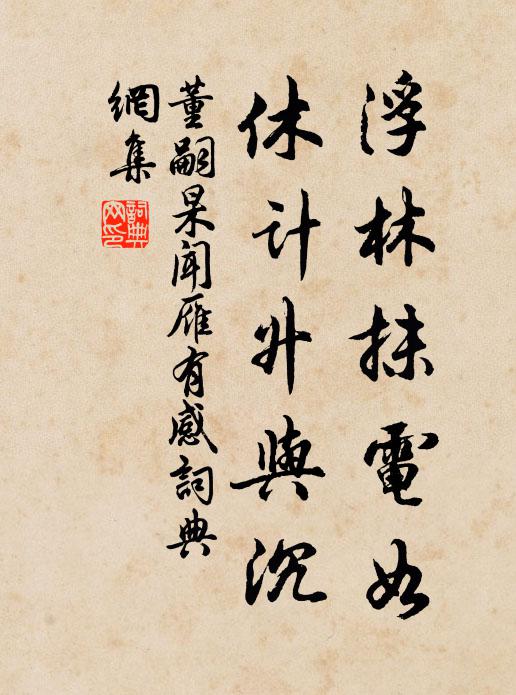 浮林抹電如
休計升與沉
董嗣杲聞雁有感詞典
網集
詞典網印